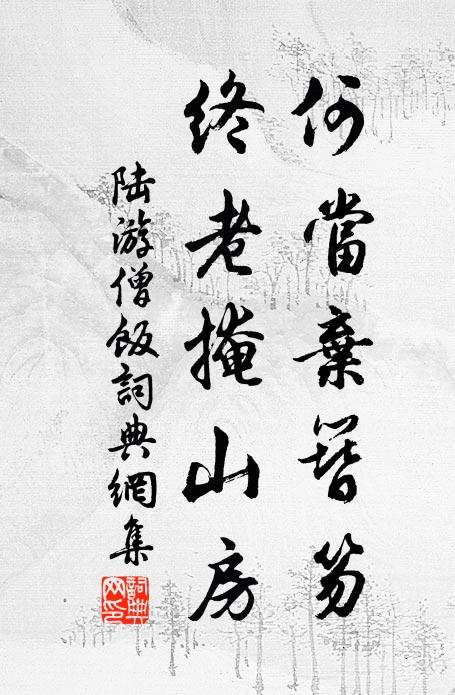 何當棄簪笏
終老掩山房
陸游僧飯詞典網集
詞典
网印